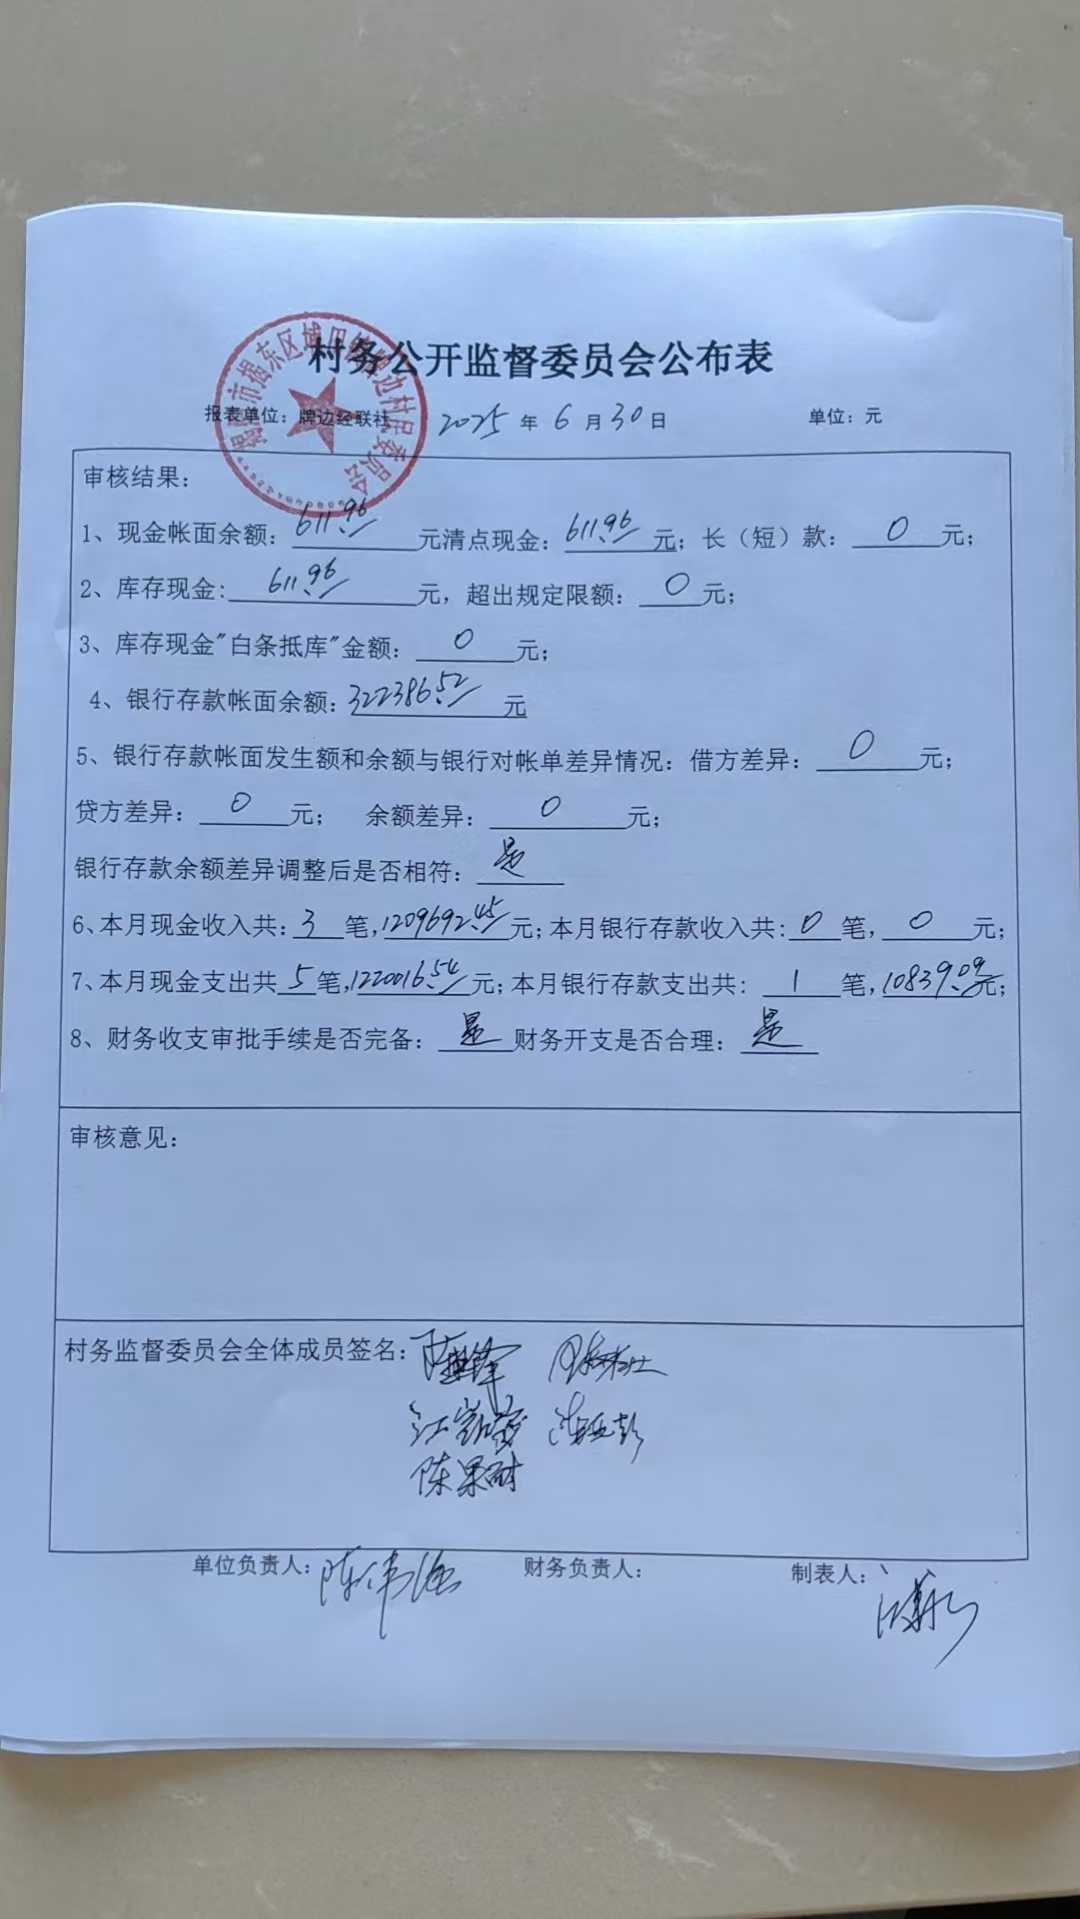 村务公开监督委员会公布表
报表单位：牌边经联社 2025年6月30日 单位：元
审核结果：
1、现金帐面余额：611.96元清点现金：611.96元；长（短）款：0元；
2、库存现金：611.96元，超出规定限额：0元；
3、库存现金"白条抵库"金额：0元；
4、银行存款帐面余额：322386.52元
5、银行存款帐面发生额和余额与银行对帐单差异情况：借方差异：0元；
贷方差异：0元； 余额差异：0元；
银行存款余额差异调整后是否相符：是
6、本月现金收入共：3笔，1209692.45元；本月银行存款收入共：0笔，0元；
7、本月现金支出共5笔，1220016.54元；本月银行存款支出共：1笔，10839.09元；
8、财务收支审批手续是否完备：是财务开支是否合理：是
审核意见：
村务监督委员会全体成员签名：
陈果耐
单位负责人：陈伟强 财务负责人： 制表人：